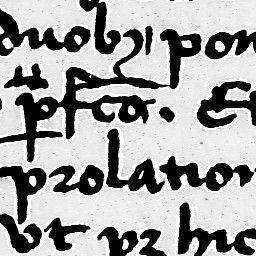 duobꝫ pon
pfca. Et
prolation
vt pꝫ hic